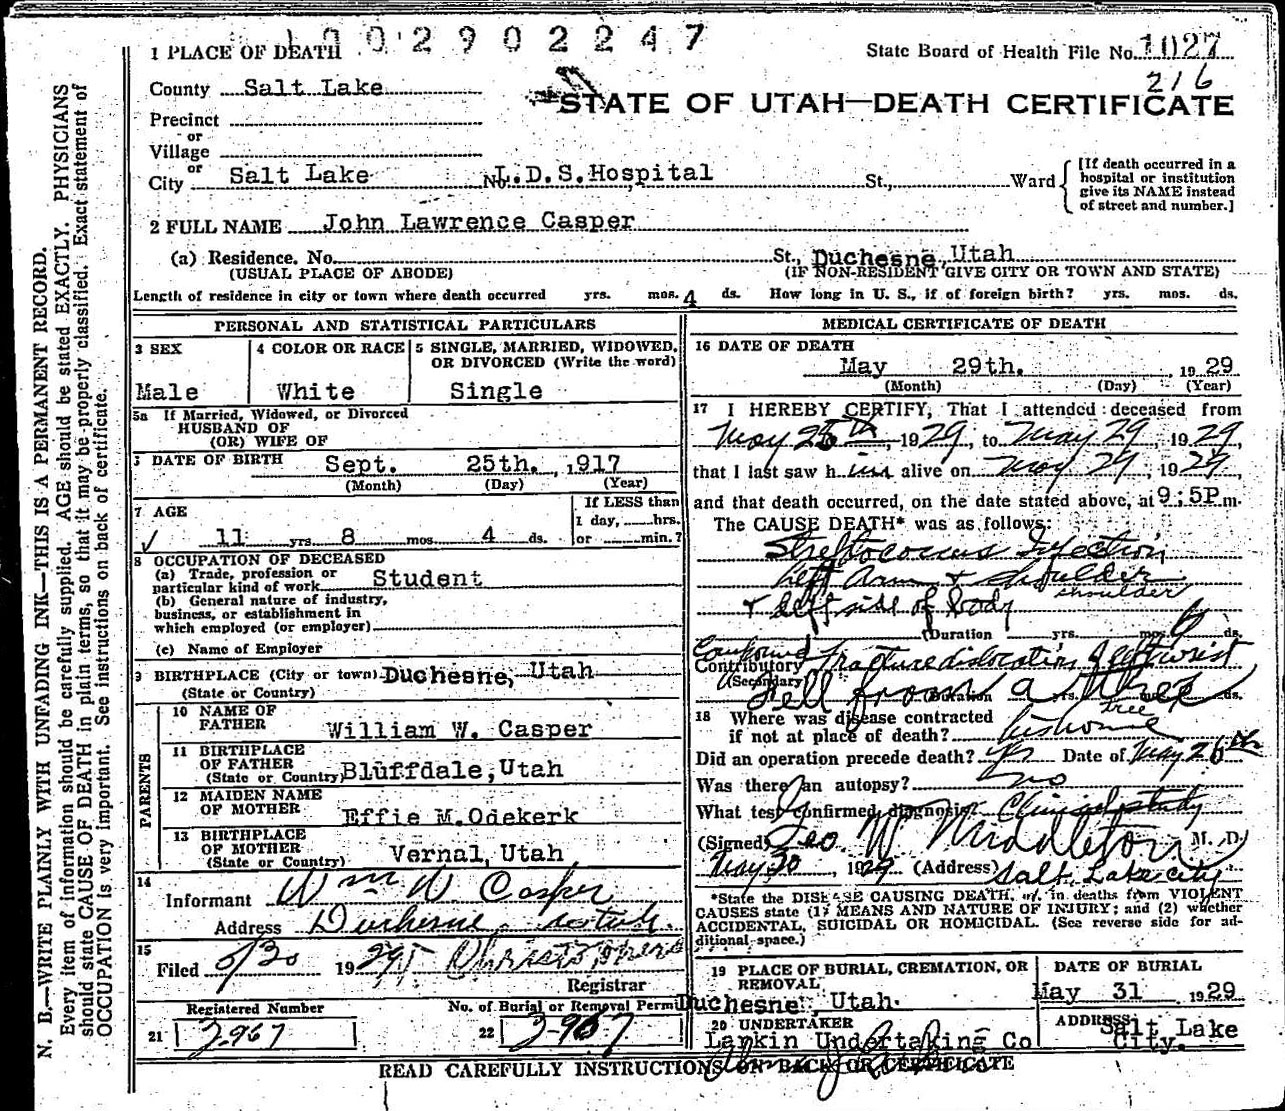 1 PLACE OF DEATH 1002902247
State Board of Health File No. 1027
216
County Salt Lake
STATE OF UTAH—DEATH CERTIFICATE
Precinct
or
Village
or
City Salt Lake No. L.D.S.Hospital St., Ward
[If death occurred in a
hospital or institution
give its NAME instead
of street and number.]
2 FULL NAME John Lawrence Casper
(a) Residence. No. St., Duchesne, Utah
(USUAL PLACE OF ABODE) (IF NON-RESIDENT GIVE CITY OR TOWN AND STATE)
Length of residence in city or town where death occurred yrs. mos. 4 ds. How long in U. S., if of foreign birth? yrs. mos. ds.
PERSONAL AND STATISTICAL PARTICULARS
3 SEX
Male
4 COLOR OR RACE
White
5 SINGLE, MARRIED, WIDOWED,
OR DIVORCED (Write the word)
Single
5a If Married, Widowed, or Divorced
HUSBAND OF
(OR) WIFE OF
DATE OF BIRTH Sept. 25th. 1917
(Month) (Day) (Year)
7 AGE
11 yrs. 8 mos. 4 ds.
If LESS than
1 day, hrs.
or min.?
8 OCCUPATION OF DECEASED
(a) Trade, profession or
particular kind of work Student
(b) General nature of industry,
business, or establishment in
which employed (or employer)
(c) Name of Employer
9 BIRTHPLACE (City or town) Duchesne, Utah
(State or Country)
PARENTS
10 NAME OF
FATHER William W. Casper
11 BIRTHPLACE
OF FATHER
(State or Country) Bluffdale, Utah
12 MAIDEN NAME
OF MOTHER Effie M. Odekerk
13 BIRTHPLACE
OF MOTHER
(State or Country) Vernal, Utah
14
Informant Wm W Casper
Address Duchesne
15
Filed 5/30 1929
Registrar
Registered Number
21 2967
No. of Burial or Removal Permit
22 2967
MEDICAL CERTIFICATE OF DEATH
16 DATE OF DEATH
May 29th. 1929
(Month) (Day) (Year)
17 I HEREBY CERTIFY, That I attended deceased from
May 25th, 1929, to May 29, 1929,
that I last saw him alive on May 29, 1929
and that death occurred, on the date stated above, at 9:5P m.
The CAUSE DEATH* was as follows:
Streptococcus Infection
Left Arm & shoulder
shoulder
& left side of body
(Duration yrs. mos. 6 ds.
Compound
Contributory fracture dislocation of left wrist
(Secondary)
Fell from a tree
Duration yrs. ds.
tree
18 Where was disease contracted
if not at place of death? his home
Did an operation precede death? yes Date of May 26th
Was there an autopsy? no
What test confirmed diagnosis? Clinical study
(Signed) Geo. W Middleton M. D.
May 30, 1929 (Address) Salt Lake City
*State the DISEASE CAUSING DEATH, or, in deaths from VIOLENT
CAUSES state (1) MEANS AND NATURE OF INJURY; and (2) whether
ACCIDENTAL, SUICIDAL OR HOMICIDAL. (See reverse side for ad-
ditional space.)
19 PLACE OF BURIAL, CREMATION, OR
REMOVAL
Duchesne, Utah.
DATE OF BURIAL
May 31 1929
20 UNDERTAKER
Larkin Undertaking Co
ADDRESS
Salt Lake
City.
READ CAREFULLY INSTRUCTIONS ON BACK OF CERTIFICATE
N. B.—WRITE PLAINLY WITH UNFADING INK—THIS IS A PERMANENT RECORD.
Every item of information should be carefully supplied. AGE should be stated EXACTLY. PHYSICIANS
should state CAUSE OF DEATH in plain terms, so that it may be properly classified. Exact statement of
OCCUPATION is very important. See instructions on back of certificate.